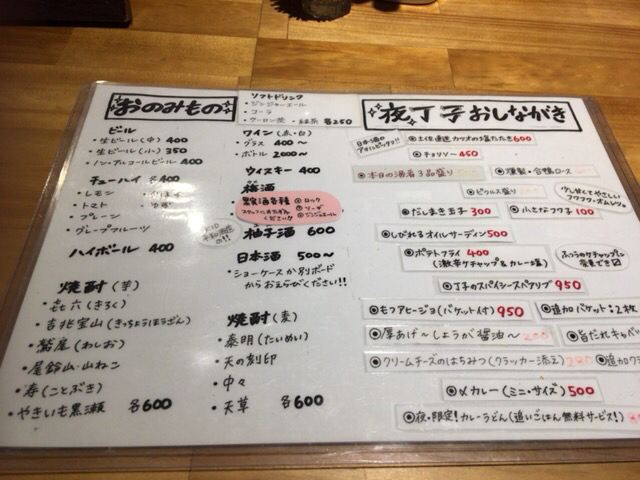 おのみもの
ビール
・生ビール(中) 400
・生ビール(小) 350
・ノンアルコールビール 400
チューハイ 各400
・レモン
・トマト
・プレーン
・グレープフルーツ
ハイボール 400
焼酎(芋)
・㐂六(きろく)
・吉兆宝山(きっちょうほうざん)
・鷲尾(わしお)
・尾鈴山・山ねこ
・寿(ことぶき)
・やきいも黒瀬 各600
ソフトドリンク
・ジンジャーエール
・コーラ
・ウーロン茶・緑茶 各250
ワイン(赤・白)
・グラス 400〜
・ボトル 2000〜
ウィスキー 400
梅酒
数種各種
スタッフにおたずね
ください!!
ロック
ソーダ
ジンジャエール
柚子酒 600
日本酒 500〜
・ショーケースか別ボード
からおえらびください!!
焼酎(麦)
・泰明(たいめい)
・天の刻印
・中々
・天草 各600
夜丁子おしながき
日本酒の
アテにピッタリ!!
◉土佐直送 カツオの塩たたき600
◉チョリソー 450
◉本日の酒肴3品盛り
◉燻製・合鴨ロース
◉ピクルス盛り
少し甘くてやさしい
フワフワ・オムレツ。
◉だしまき玉子 300
◉小さなフグ子 100
◉しびれるオイルサーディン500
◉ポテトフライ 400
(激辛ケチャップ&カレー塩)
ふつうのケチャップに
変更でき
◉丁子のスパイシースペアリブ 950
◉もつアヒージョ(バケット付)950
◉追加バケット:2枚
◉厚あげ〜しょうが醤油〜
◉旨だれキャベ
◉クリームチーズのはちみつ(クラッカー添え)
◉追加クラ
◉〆カレー(ミニ・サイズ)500
◉夜・限定!カレーうどん(追いごはん無料サービス!)